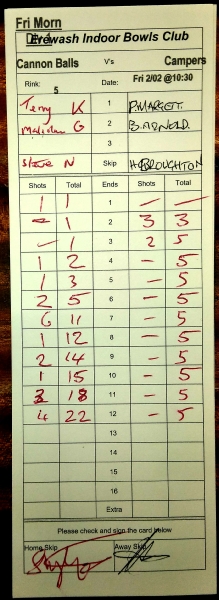 Fri Morn
Erewash Indoor Bowls Club
Cannon Balls V's Campers
Rink: 5 Date: Fri 2/02 @10:30
Terry K 1 P. MARGET.
Malcolm G 2 B. ARNOLD.
3
Steve N Skip H BROUGHTON
Shots Total Ends Shots Total
1 1 1 — —
- 1 2 3 3
- 1 3 2 5
1 2 4 - 5
1 3 5 - 5
2 5 6 - 5
6 11 7 - 5
1 12 8 - 5
2 14 9 - 5
1 15 10 - 5
3 18 11 - 5
4 22 12 - 5
13
14
15
16
Extra
Please check and sign the card below
Home Skip Away Skip